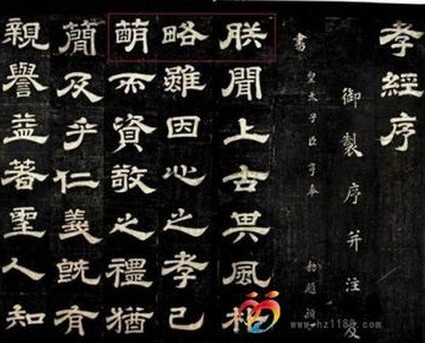 孝經序
御製序并注及
書 皇太子臣亨奉 勅題額
朕聞上古其風朴
略雖因心之孝已
萌而資敬之禮猶
簡及乎仁義既有
親譽益著聖人知
www.hz1188.com